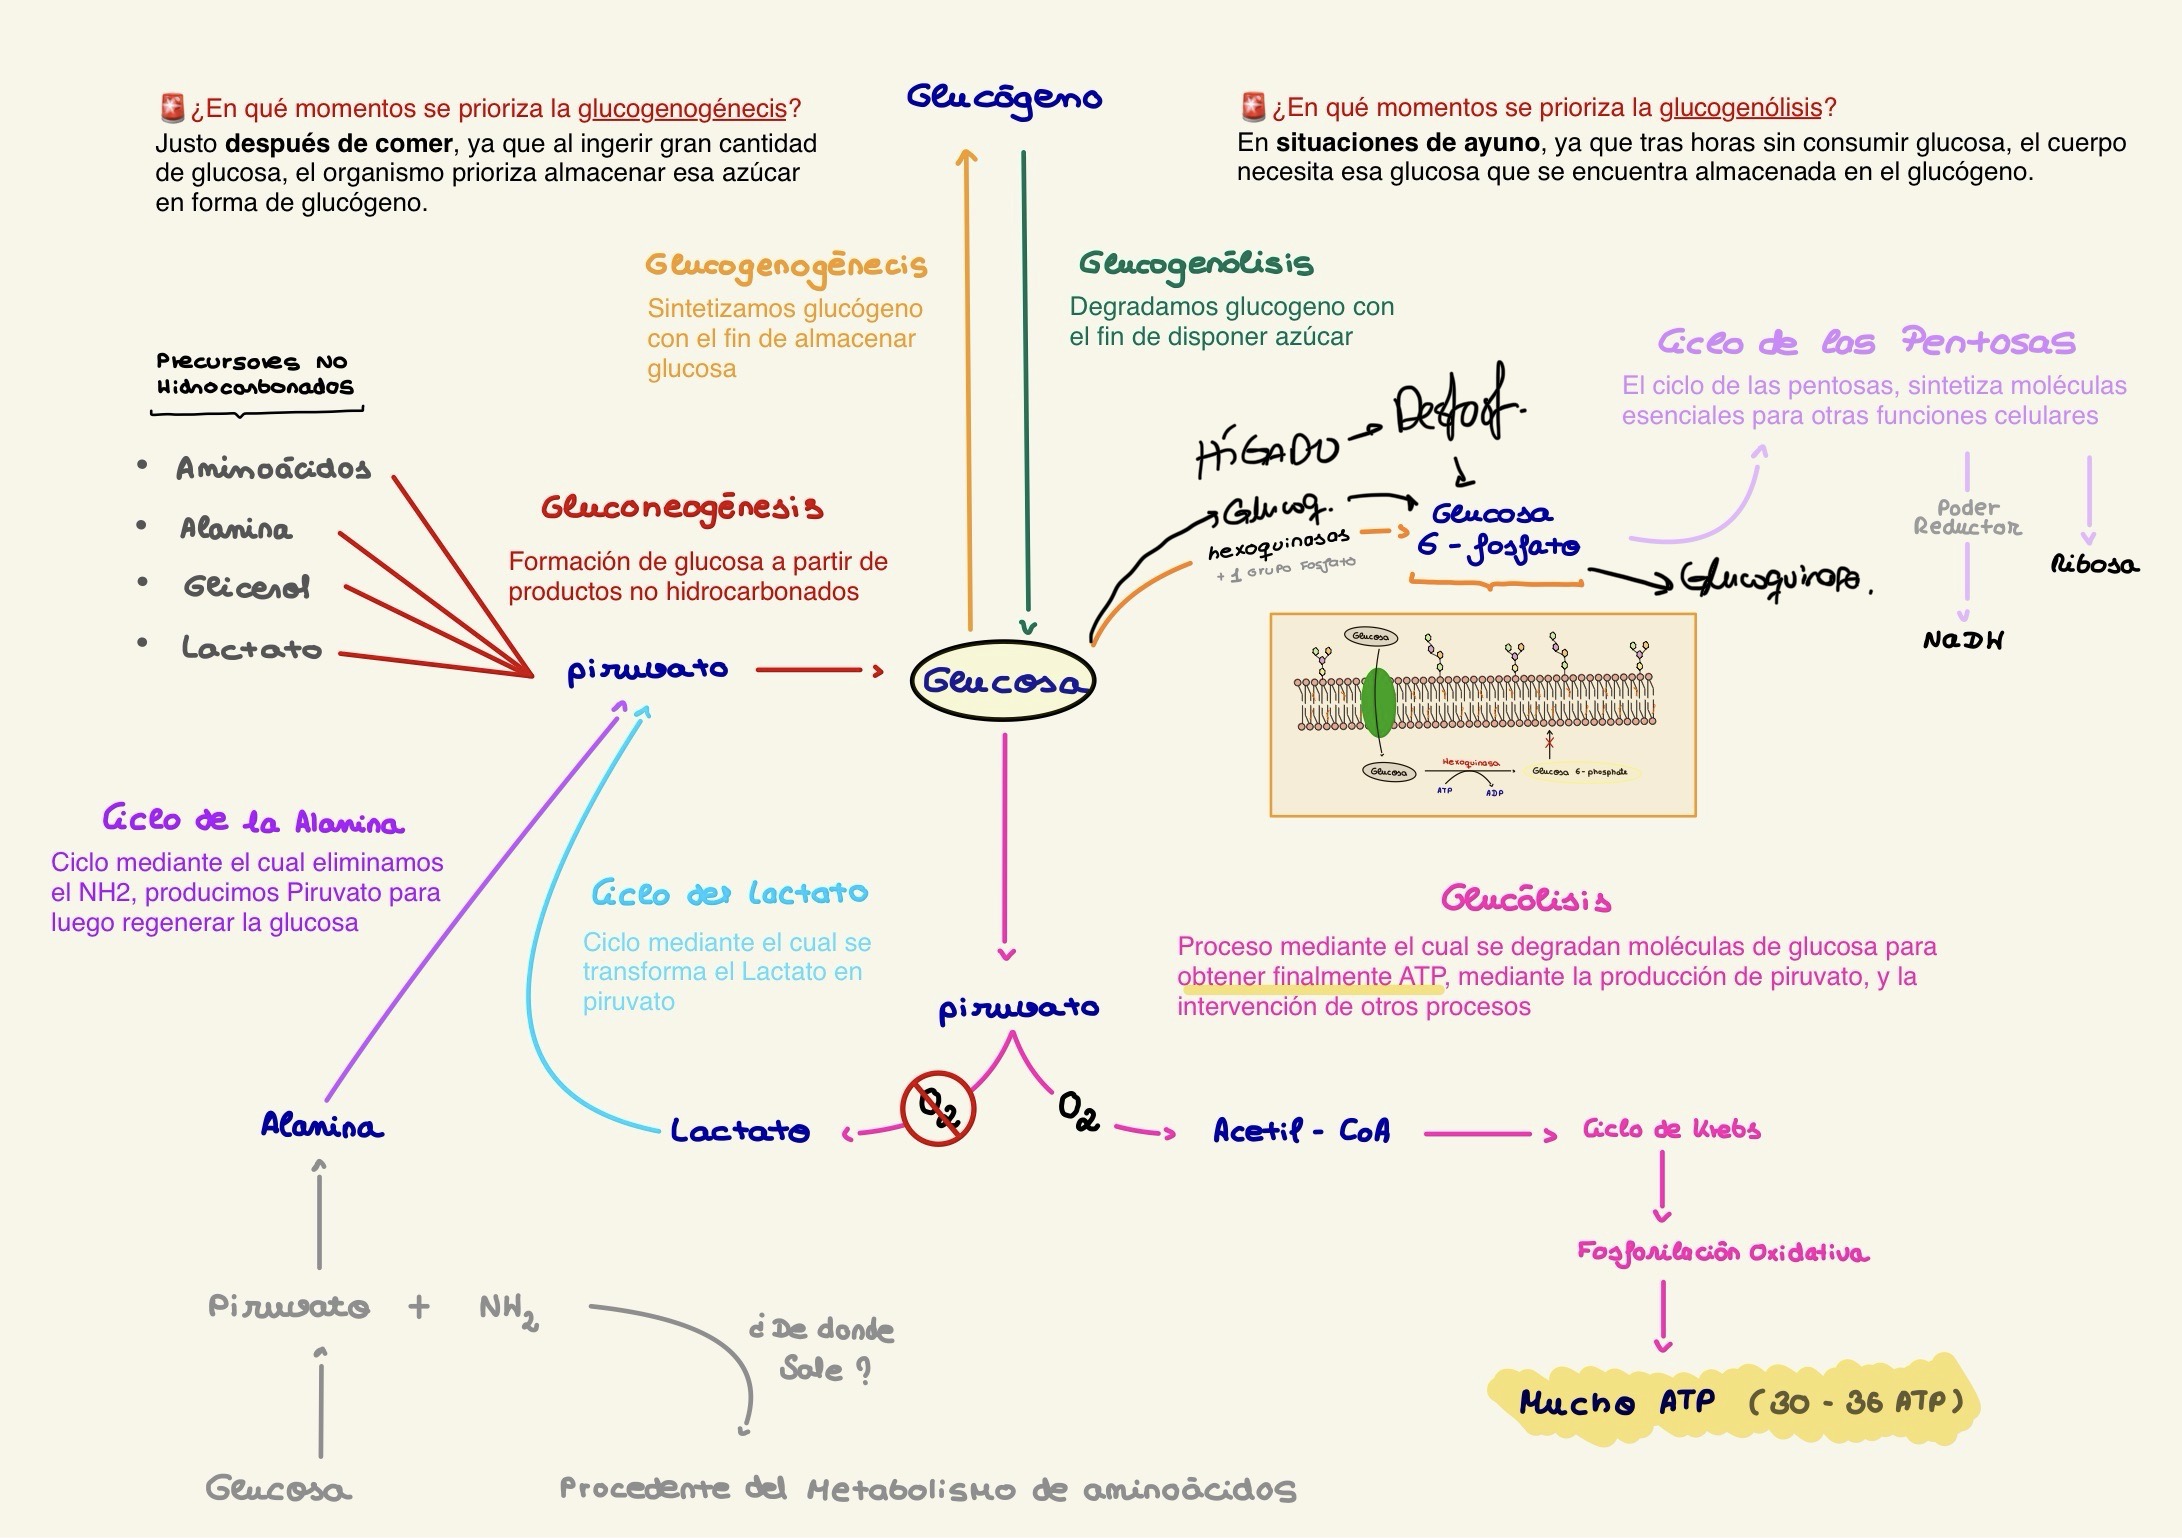 Glucógeno
¿En qué momentos se prioriza la glucogenogénecis?
Justo después de comer, ya que al ingerir gran cantidad
de glucosa, el organismo prioriza almacenar esa azúcar
en forma de glucógeno.
¿En qué momentos se prioriza la glucogenólisis?
En situaciones de ayuno, ya que tras horas sin consumir glucosa, el cuerpo
necesita esa glucosa que se encuentra almacenada en el glucógeno.
Glucogenogénecis
Sintetizamos glucógeno
con el fin de almacenar
glucosa
Glucogenólisis
Degradamos glucogeno con
el fin de disponer azúcar
Ciclo de las Pentosas
El ciclo de las pentosas, sintetiza moléculas
esenciales para otras funciones celulares
Poder
Reductor
NaDH
Ribosa
Precursores No
Hidrocarbonados
• Aminoácidos
• Alanina
• Glicerol
• Lactato
Gluconeogénesis
Formación de glucosa a partir de
productos no hidrocarbonados
HÍGADO
Desfosf.
Glucoq.
hexoquinasas
+ 1 Grupo Fosfato
Glucosa
6 - fosfato
piruvato
Glucosa
Glucosa
Glucosa
Hexoquinasa
ATP
ADP
Glucosa 6-phosphate
Ciclo de la Alanina
Ciclo mediante el cual eliminamos
el NH2, producimos Piruvato para
luego regenerar la glucosa
Ciclo del Lactato
Ciclo mediante el cual se
transforma el Lactato en
piruvato
Glucólisis
Proceso mediante el cual se degradan moléculas de glucosa para
obtener finalmente ATP, mediante la producción de piruvato, y la
intervención de otros procesos
piruvato
O2
O2
Alanina
Lactato
Acetil - CoA
Ciclo de Krebs
Fosforilación Oxidativa
Mucho ATP (30 - 36 ATP)
Piruvato + NH2
¿De donde
Sale?
Glucosa
Procedente del Metabolismo de aminoácidos